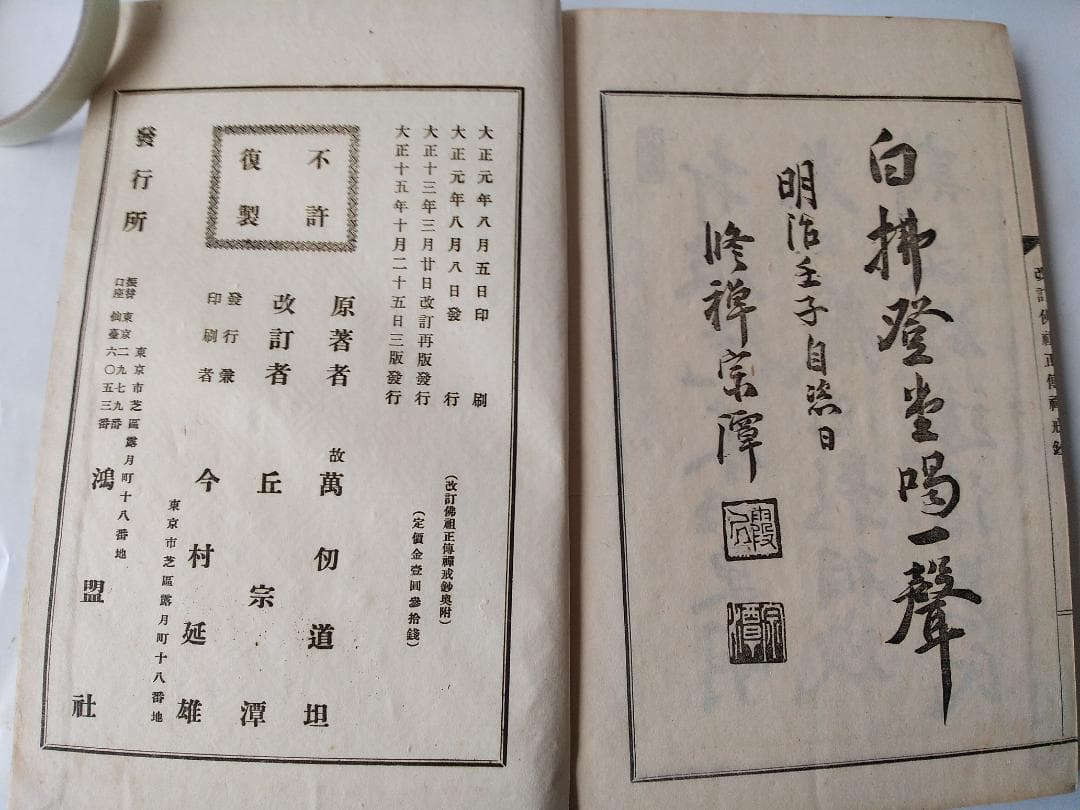 白拂登堂喝一聲
明治壬子自恣日
修禅宗潭
宗潭
改訂佛祖正傳禅戒鈔
大正元年八月五日印刷
大正元年八月八日發行
大正十三年三月廿日改訂再版發行
大正十五年十月二十五日三版發行
(改訂佛祖正傳禪戒鈔奥附)
(定價金壹圓參拾錢)
不許
復製
原著者 故 萬仭道坦
改訂者 丘宗潭
發行兼
印刷者
今村延雄
東京市芝區露月町十八番地
發行所
東京市芝區露月町十八番地
鴻盟社
振替
口座
東京二九七九番
仙臺六〇五三番